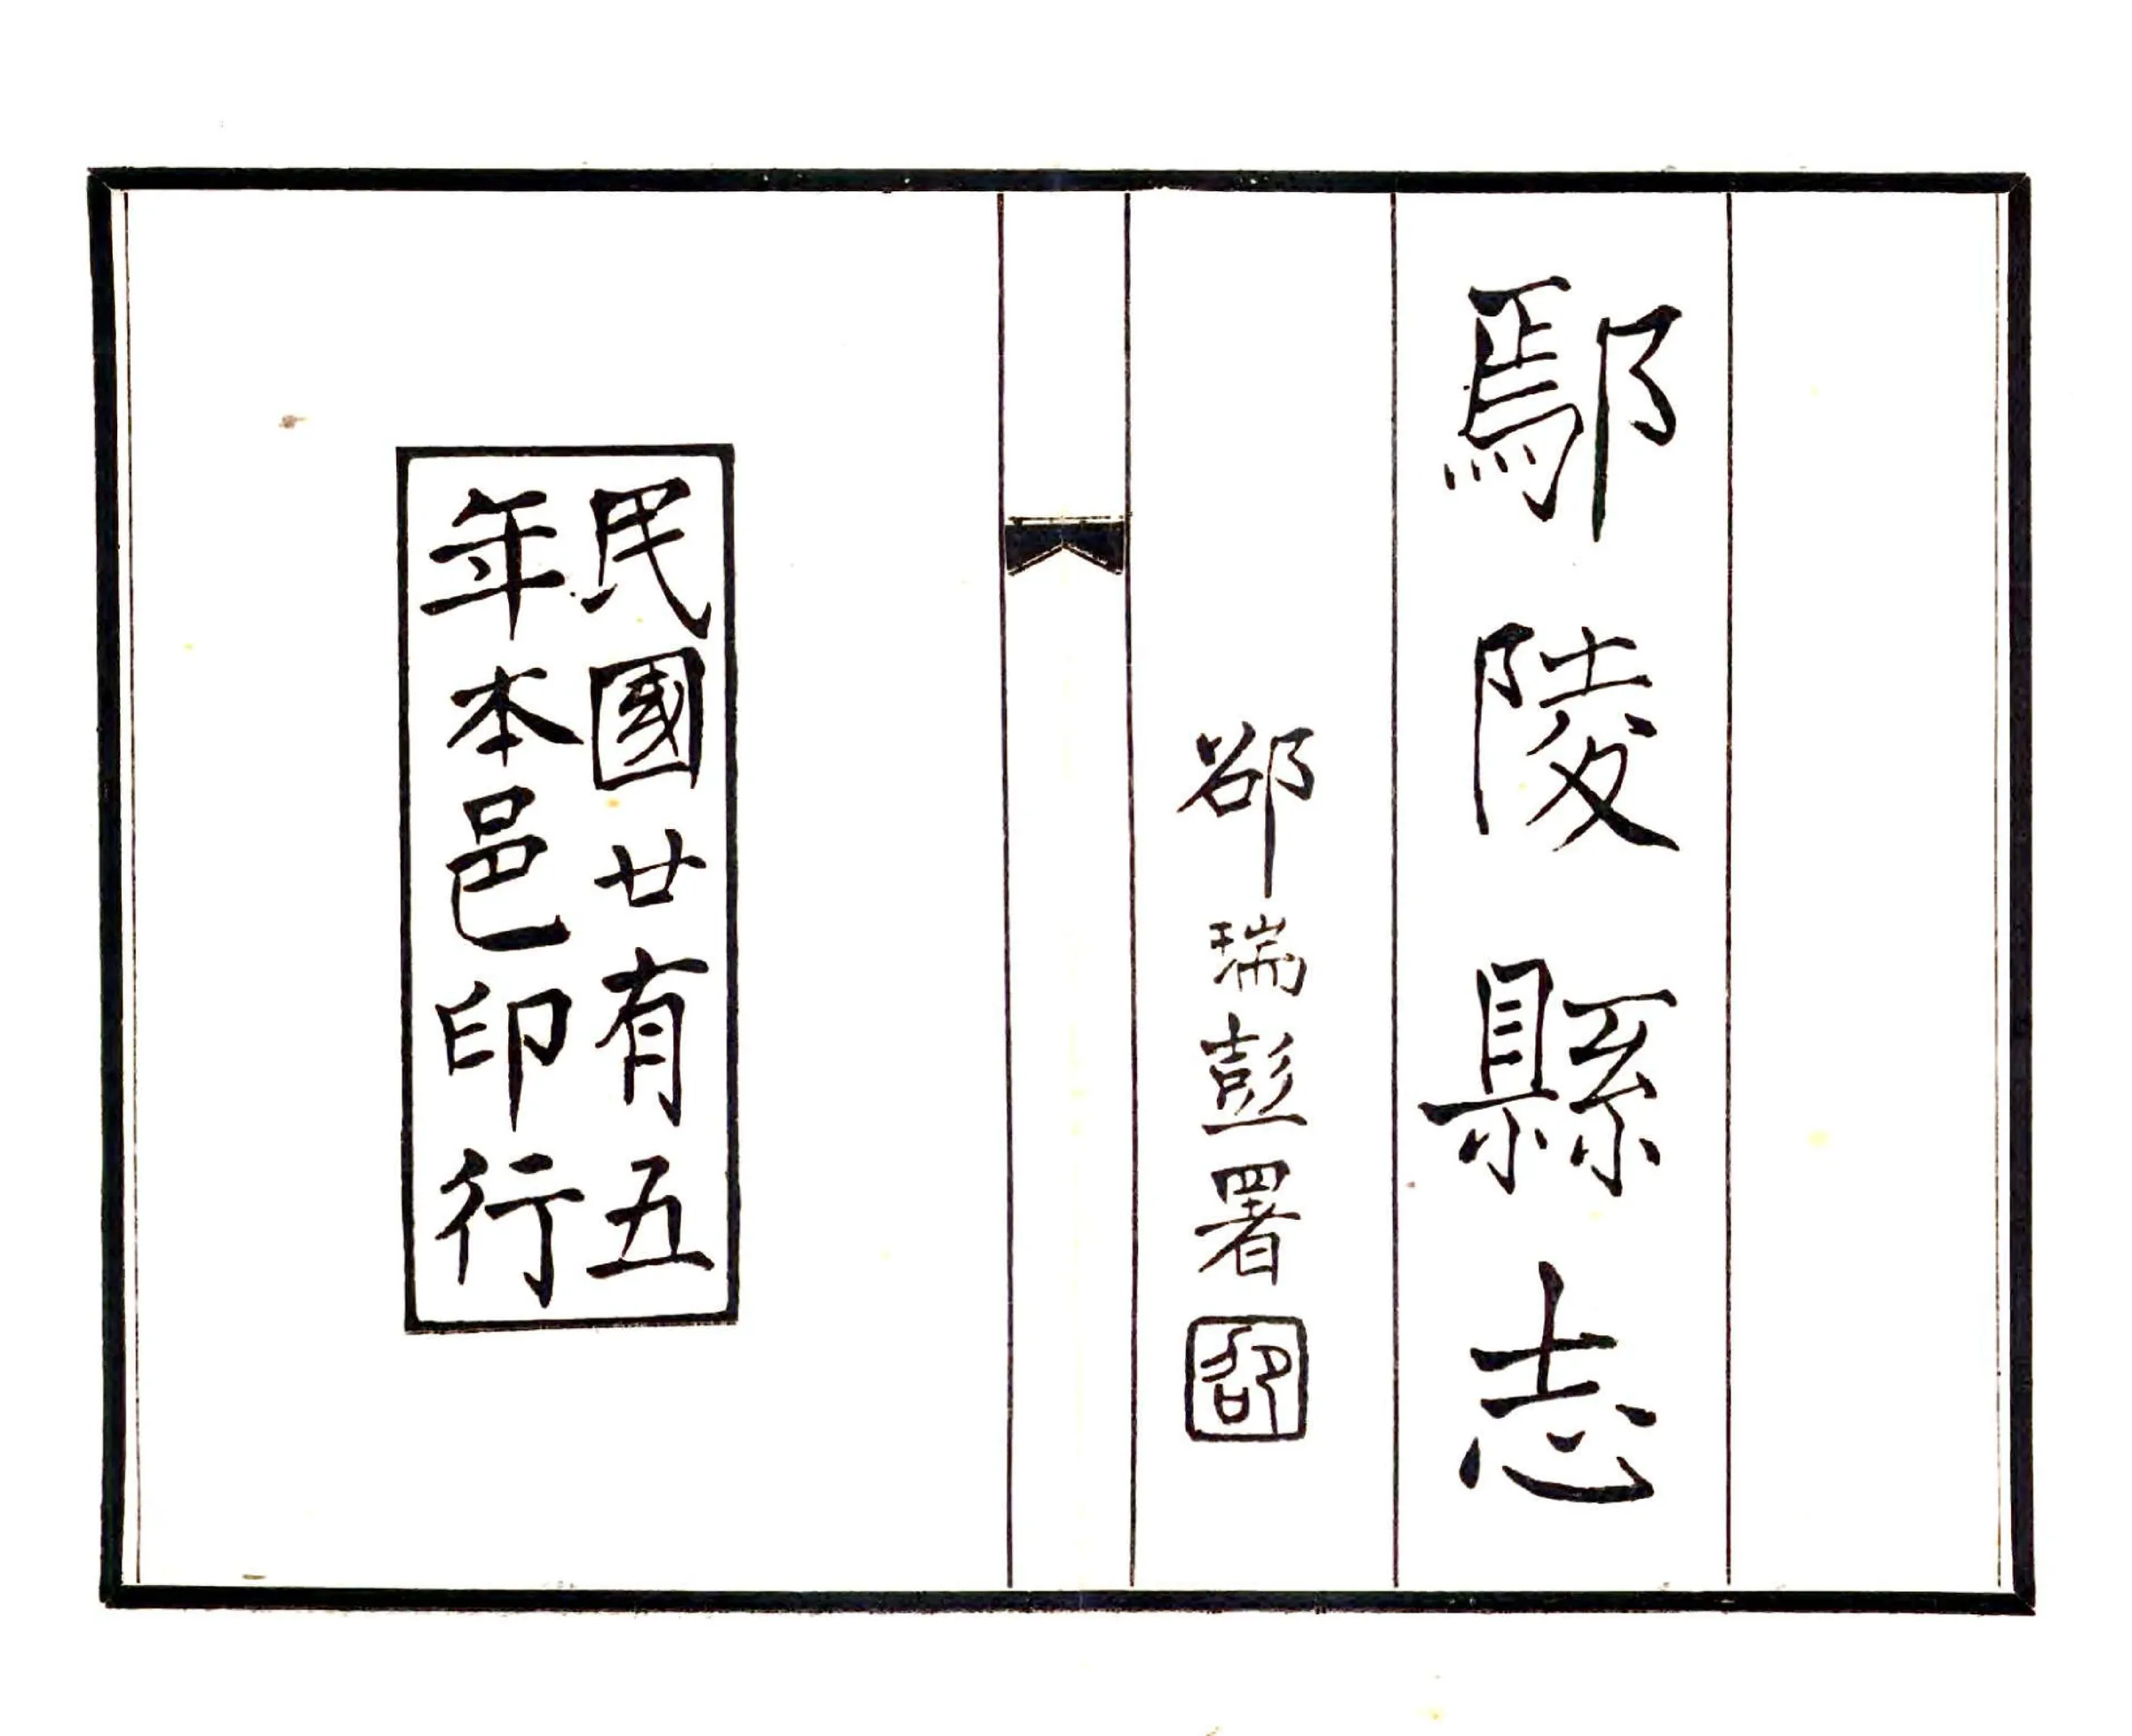 鄢陵縣志
邵瑞彭署
邵
民國廿有五
年本邑印行